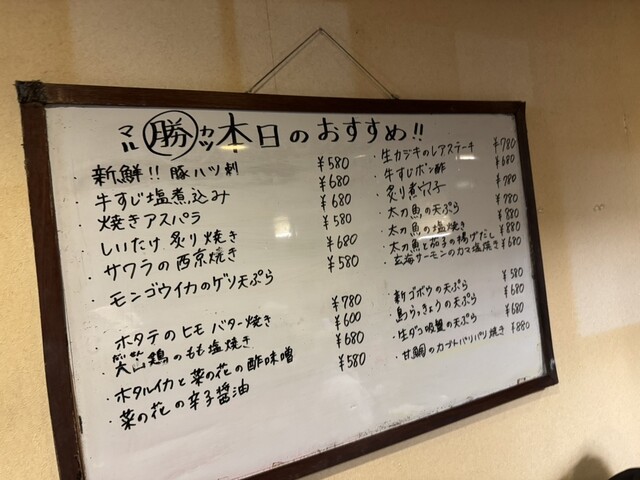 マル 勝 カツ 本日のおすすめ!!
・新鮮!! 豚ハツ刺 ¥580
・牛すじ塩煮込み ¥680
・焼きアスパラ ¥680
・しいたけ炙り焼き ¥580
・サワラの西京焼き ¥680
・モンゴウイカのゲソ天ぷら ¥580
・ホタテのヒモバター焼き ¥780
・大山鶏のもも塩焼き ¥600
・ホタルイカと菜の花の酢味噌 ¥680
・菜の花の辛子醤油 ¥580
・生カジキのレアステーキ ¥780
・牛すじポン酢 ¥680
・炙り煮穴子 ¥780
・太刀魚の天ぷら ¥780
・太刀魚の塩焼き ¥880
・太刀魚と茄子の揚げだし ¥880
・玄海サーモンのカマ塩焼き ¥680
・新ゴボウの天ぷら ¥580
・島らっきょうの天ぷら ¥680
・生ダコ吸盤の天ぷら ¥680
・甘鯛のカブトパリパリ焼き ¥880